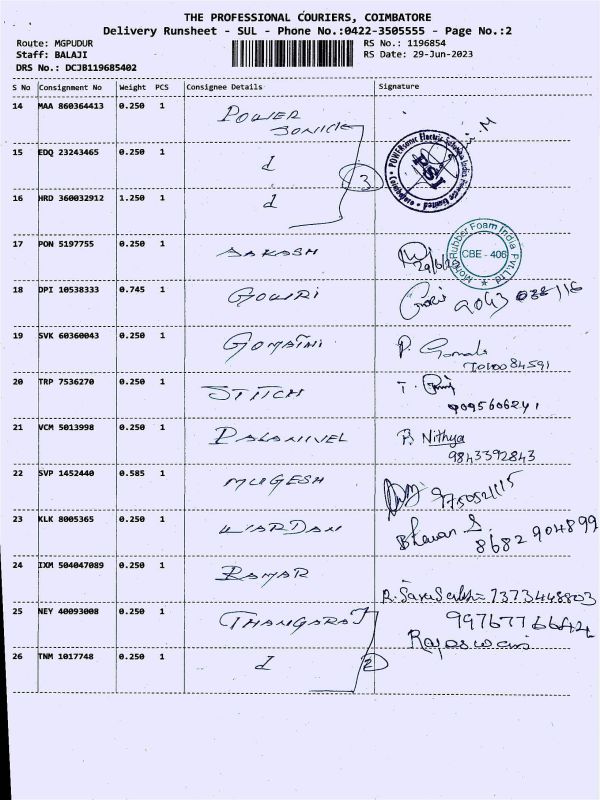 THE PROFESSIONAL COURIERS, COIMBATORE
Delivery Runsheet - SUL - Phone No.:0422-3505555 - Page No.:2
Route: MGPUDUR RS No.: 1196854
Staff: BALAJI RS Date: 29-Jun-2023
DRS No.: DCJB119685402
S No Consignment No Weight PCS Consignee Details Signature
14 MAA 860364413 0.250 1 POWER
SONICE
15 EDQ 23243465 0.250 1 d
3
16 HRD 360032912 1.250 1 d
POWERsonic Electric India Private Limited Coimbatore
PSI
17 PON 5197755 0.250 1 AAKASH
Rubber Foam India Pvt.Ltd
CBE - 406
18 DPI 10538333 0.745 1 GOWRI Gowri 9043 038 116
19 SVK 60360043 0.250 1 GOMATHI P. Gomathi
7010084591
20 TRP 7536270 0.250 1 STITCH T.
9095606241
21 VCM 5013998 0.250 1 PALANIVEL P. Nithya
9843392843
22 SVP 1452440 0.585 1 MUGESH 9750521115
23 KLK 8005365 0.250 1 WARDAN Bhavan S.
8682904899
24 IXM 504047089 0.250 1 RAMAR
R. 7373448803
25 NEY 40093008 0.250 1 THANGARAJ 9976776642
Rajaswari
26 TNM 1017748 0.250 1 d 2